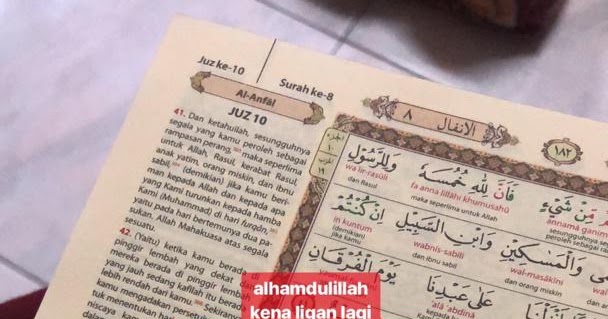 Juz ke-10
Surah ke-8
Al-Anfāl
JUZ 10
41. Dan ketahuilah, sesungguhnya
segala yang kamu peroleh sebagai
rampasan perang, maka seperlima
untuk Allah, Rasul, kerabat Rasul
anak yatim, orang miskin, dan ibnu
sabil, (demikian) jika kamu beri-
man kepada Allah dan kepada apa
yang Kami turunkan kepada hamba
Kami (Muhammad) di hari furqān,
yaitu pada hari bertemunya dua pa-
sukan. Allah Mahakuasa atas segala
sesuatu.
42. (Yaitu) ketika kamu berada
pinggir lembah yang dekat
mereka berada di pinggir
yang jauh sedang kafilah itu berada
lebih rendah dari kamu. Sekiranya
kamu mengadakan persetujuan
tuk menentukan hari
niscaya kamu
الأنفال ٨
١٨٢
الجزء ١٠
مِّنْ شَيْءٍ فَأَنَّ لِلّٰهِ خُمُسَهٗ وَلِلرَّسُوْلِ
wa lir-rasūli
fa anna lillāhi khumusahū
annamā ganim
dan Rasul
maka seperlima untuk Allah
sesungguhnya se
peroleh sebagai ra
وَالْمَسٰكِيْنِ وَابْنِ السَّبِيْلِ اِنْ كُنْتُمْ
in kuntum
wabnis-sabīli
wal-masākīni
(demikian)
jika kamu
dan ibnu sabil
dan orang miskin
عَلٰى عَبْدِنَا يَوْمَ الْفُرْقَانِ
'alā 'abdinā
kepada
alhamdulillah
kena ligan lagi